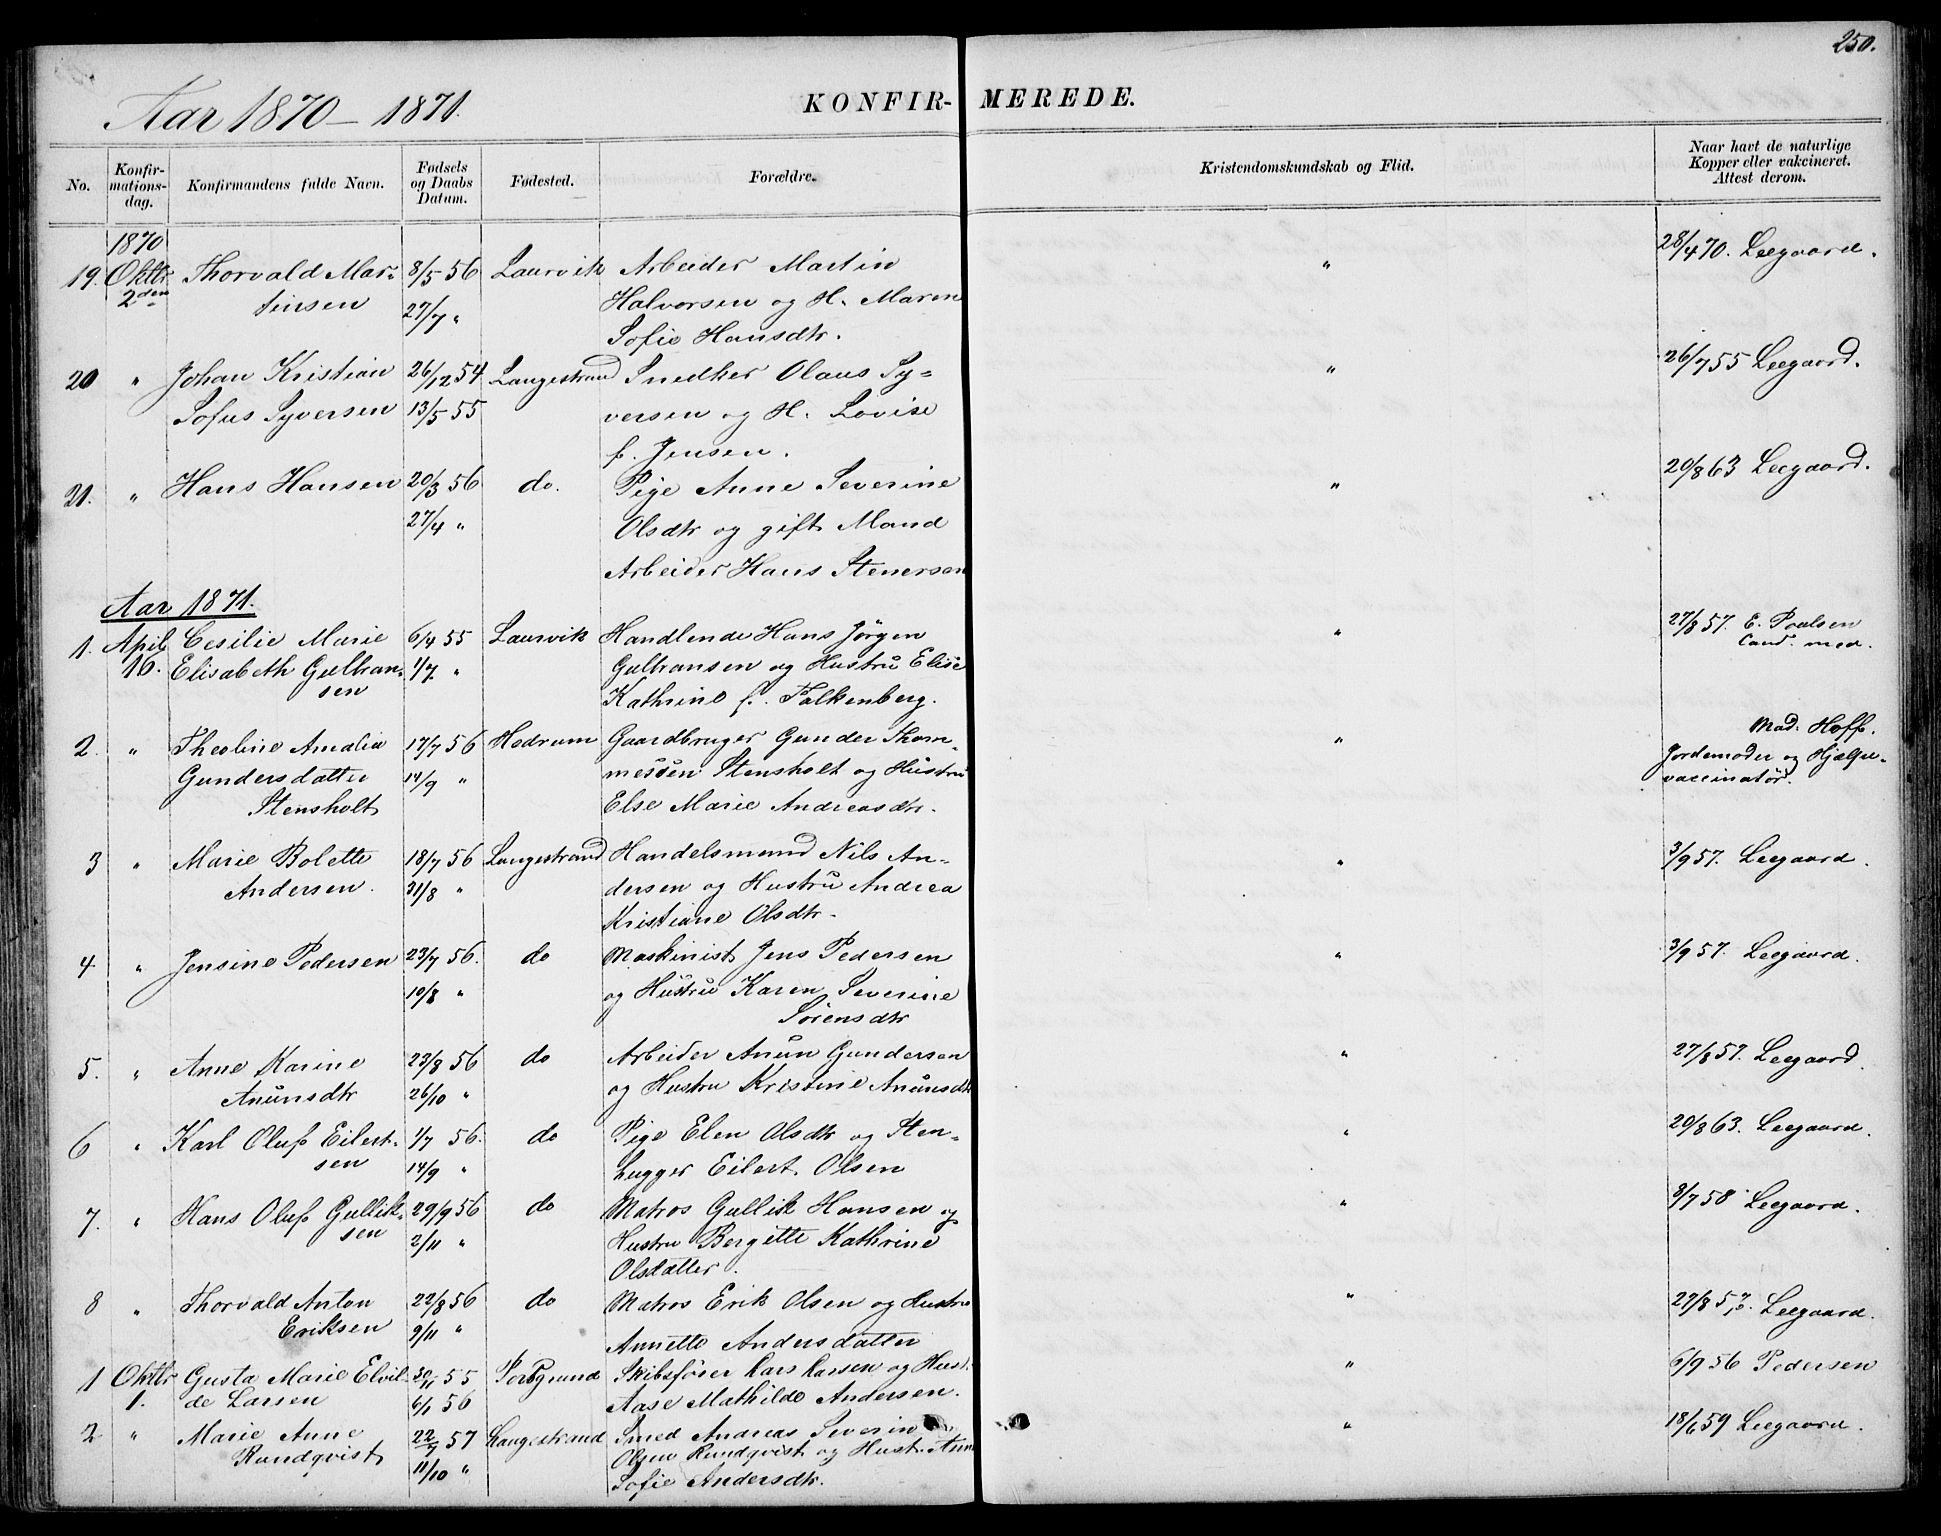 250.
Aar 1870 - 1871.
KONFIR- MEREDE.
No.
Konfir-
mations-
dag.
Konfirmandens fulde Navn.
Fødsels
og Daabs
Datum.
Fødested.
Forældre.
Kristendomskundskab og Flid.
Naar havt de naturlige
Kopper eller vakcineret.
Attest derom.
1870
19. Oktbr Thorvald Mar- 8/5 56 Laurvik Arbeider Martin " 28/4 70. Leegaard.
2den tinsen 27/7 " Halvorsen og H. Maren
Sofie Hansdtr.
20 " Johan Kristian 26/12 54 Langestrand Snedker Olaus Sy= " 26/7 55 Leegaard.
Sofus Syversen 13/5 55 versen og H. Lovise
f. Jensen.
21. " Hans Hansen 20/3 56 do. Pige Anne Severine " 20/8 63 Leegaard.
27/4 " Olsdtr og gift Mand
Arbeider Hans Stenersen
Aar 1871.
1. April Cesilie Marie 6/4 55 Laurvik Handlende Hans Jørgen " 27/8 57. E. Poulsen
16. Elisabeth Gulbran- 1/7 " Gulbransen og Hustru Elise Cand. med.
sen Kathrine f. Falkenberg.
2. " Theoline Amalia 17/7 56 Hedrum Gaardbruger Gunder Thom- " Mad. Hoff.
Gundersdatter 14/9 " messen Stensholt og Hustru Jordemoder og Hjælpe-
Stensholt Else Marie Andreasdtr. vaccinatør.
3 " Marie Bolette 18/7 56 Langestrand Handelsmand Nils An- " 3/9 57. Leegaard.
Andersen. 31/8 " dersen og Hustru Andrea
Kristiane Olsdtr.
4 " Jensine Pedersen 23/7 56. do Maskinist Jens Pedersen " 3/9 57. Leegaard.
10/8 " og Hustru Karen Severine
Sörensdtr
5. " Anne Karine 23/8 56 do Arbeider Anun Gundersen " 27/8 57. Leegaard.
Anunsdtr 26/10 " og Hustru Kristine Anunsdtr
6 " Karl Oluf Eilert- 1/7 56. do Pige Elen Olsdtr og Sten- " 20/8 63. Leegaard.
sen 14/9 " hugger Eilert Olsen
7. " Hans Oluf Gullik- 29/9 56 do Matros Gullik Hansen og " 8/7 58 Leegaard.
sen 2/11 " Hustru Bergitte Kathrine
Olsdatter.
8 " Thorvald Anton 22/8 56 do Matros Erik Olsen og Hustru " 27/8 57. Leegaard.
Eriksen 9/11 " Annette Andersdatter
1 Oktbr Gusta Marie Elvil- 30/11 55 Porsgrund Skibsfører Lars Larsen og Hust. " 6/9 56 Pedersen
1. de Larsen 6/1 56 Aase Mathilde Andersen.
2 " Marie Anne 22/7 57 Langestrand Smed Andreas Severin " 18/6 59 Leegaard.
Rundqvist 11/10 " Olsen Rundqvist og Hust. Anne
Sofie Andersdtr.